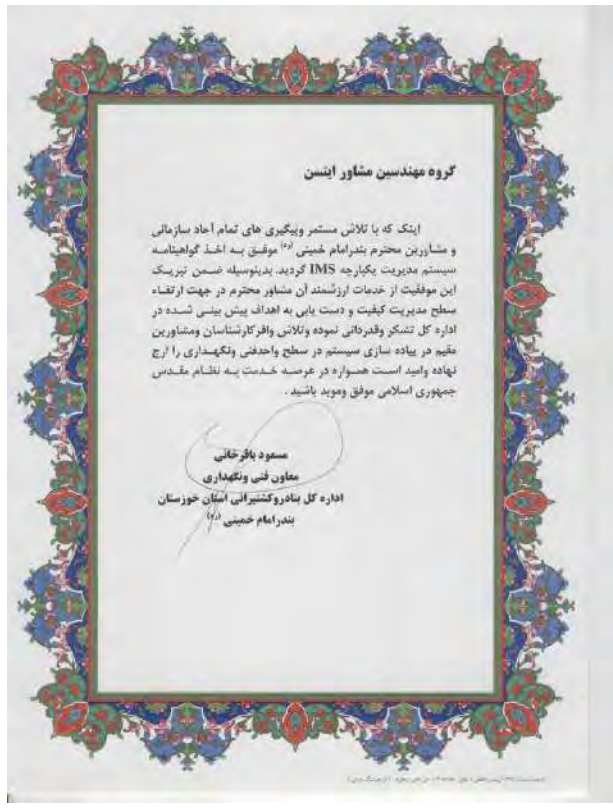 گروه مهندسین مشاور ایتسن
اینک که با تلاش مستمر وپیگیری های تمام آحاد سازمانی
و مشاورین محترم بندرامام خمینی (ره) موفق به اخذ گواهینامه
سیستم مدیریت یکپارچه IMS گردید. بدینوسیله ضمن تبریک
این موفقیت از خدمات ارزشمند آن مشاور محترم در جهت ارتقاء
سطح مدیریت کیفیت و دست یابی به اهداف پیش بینی شده در
اداره کل تشکر وقدردانی نموده وتلاش وافر کارشناسان ومشاورین
مقیم در پیاده سازی سیستم در سطح واحدفنی ونگهداری را ارج
نهاده وامید است همواره در عرصه خدمت به نظام مقدس
جمهوری اسلامی موفق وموید باشید .
مسعود باقرخانی
معاون فنی ونگهداری
اداره کل بنادروکشتیرانی استان خوزستان
بندرامام خمینی (ره)